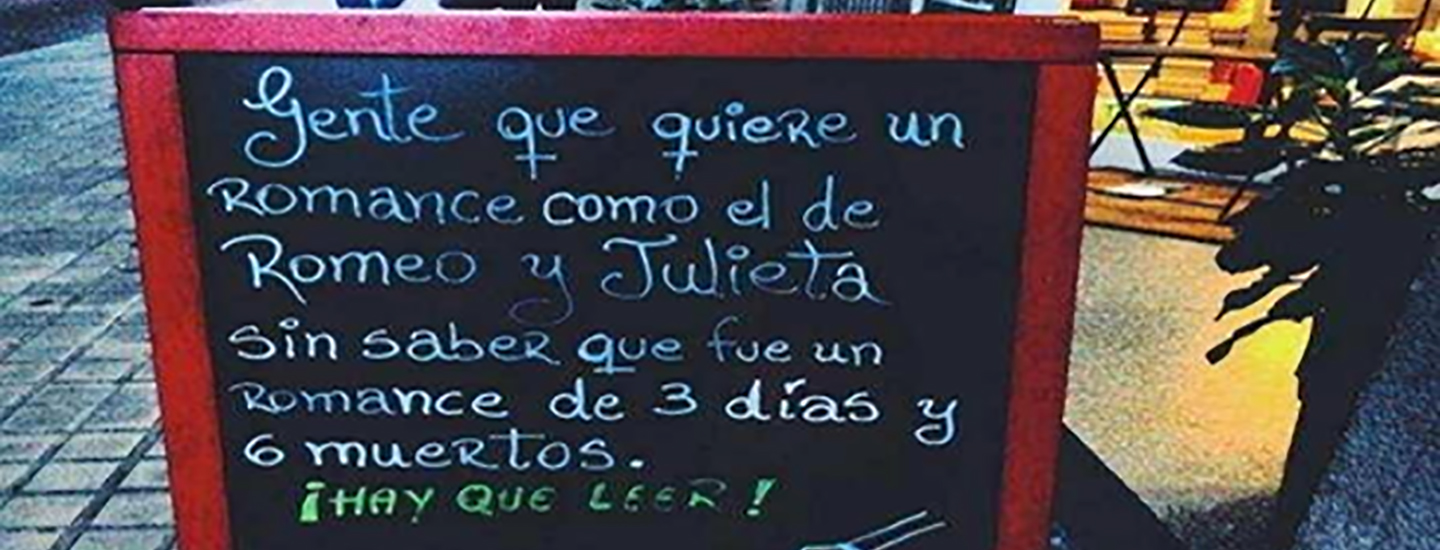 Gente que quiere un
romance como el de
Romeo y Julieta
sin saber que fue un
romance de 3 días y
6 muertos.
¡HAY QUE LEER!